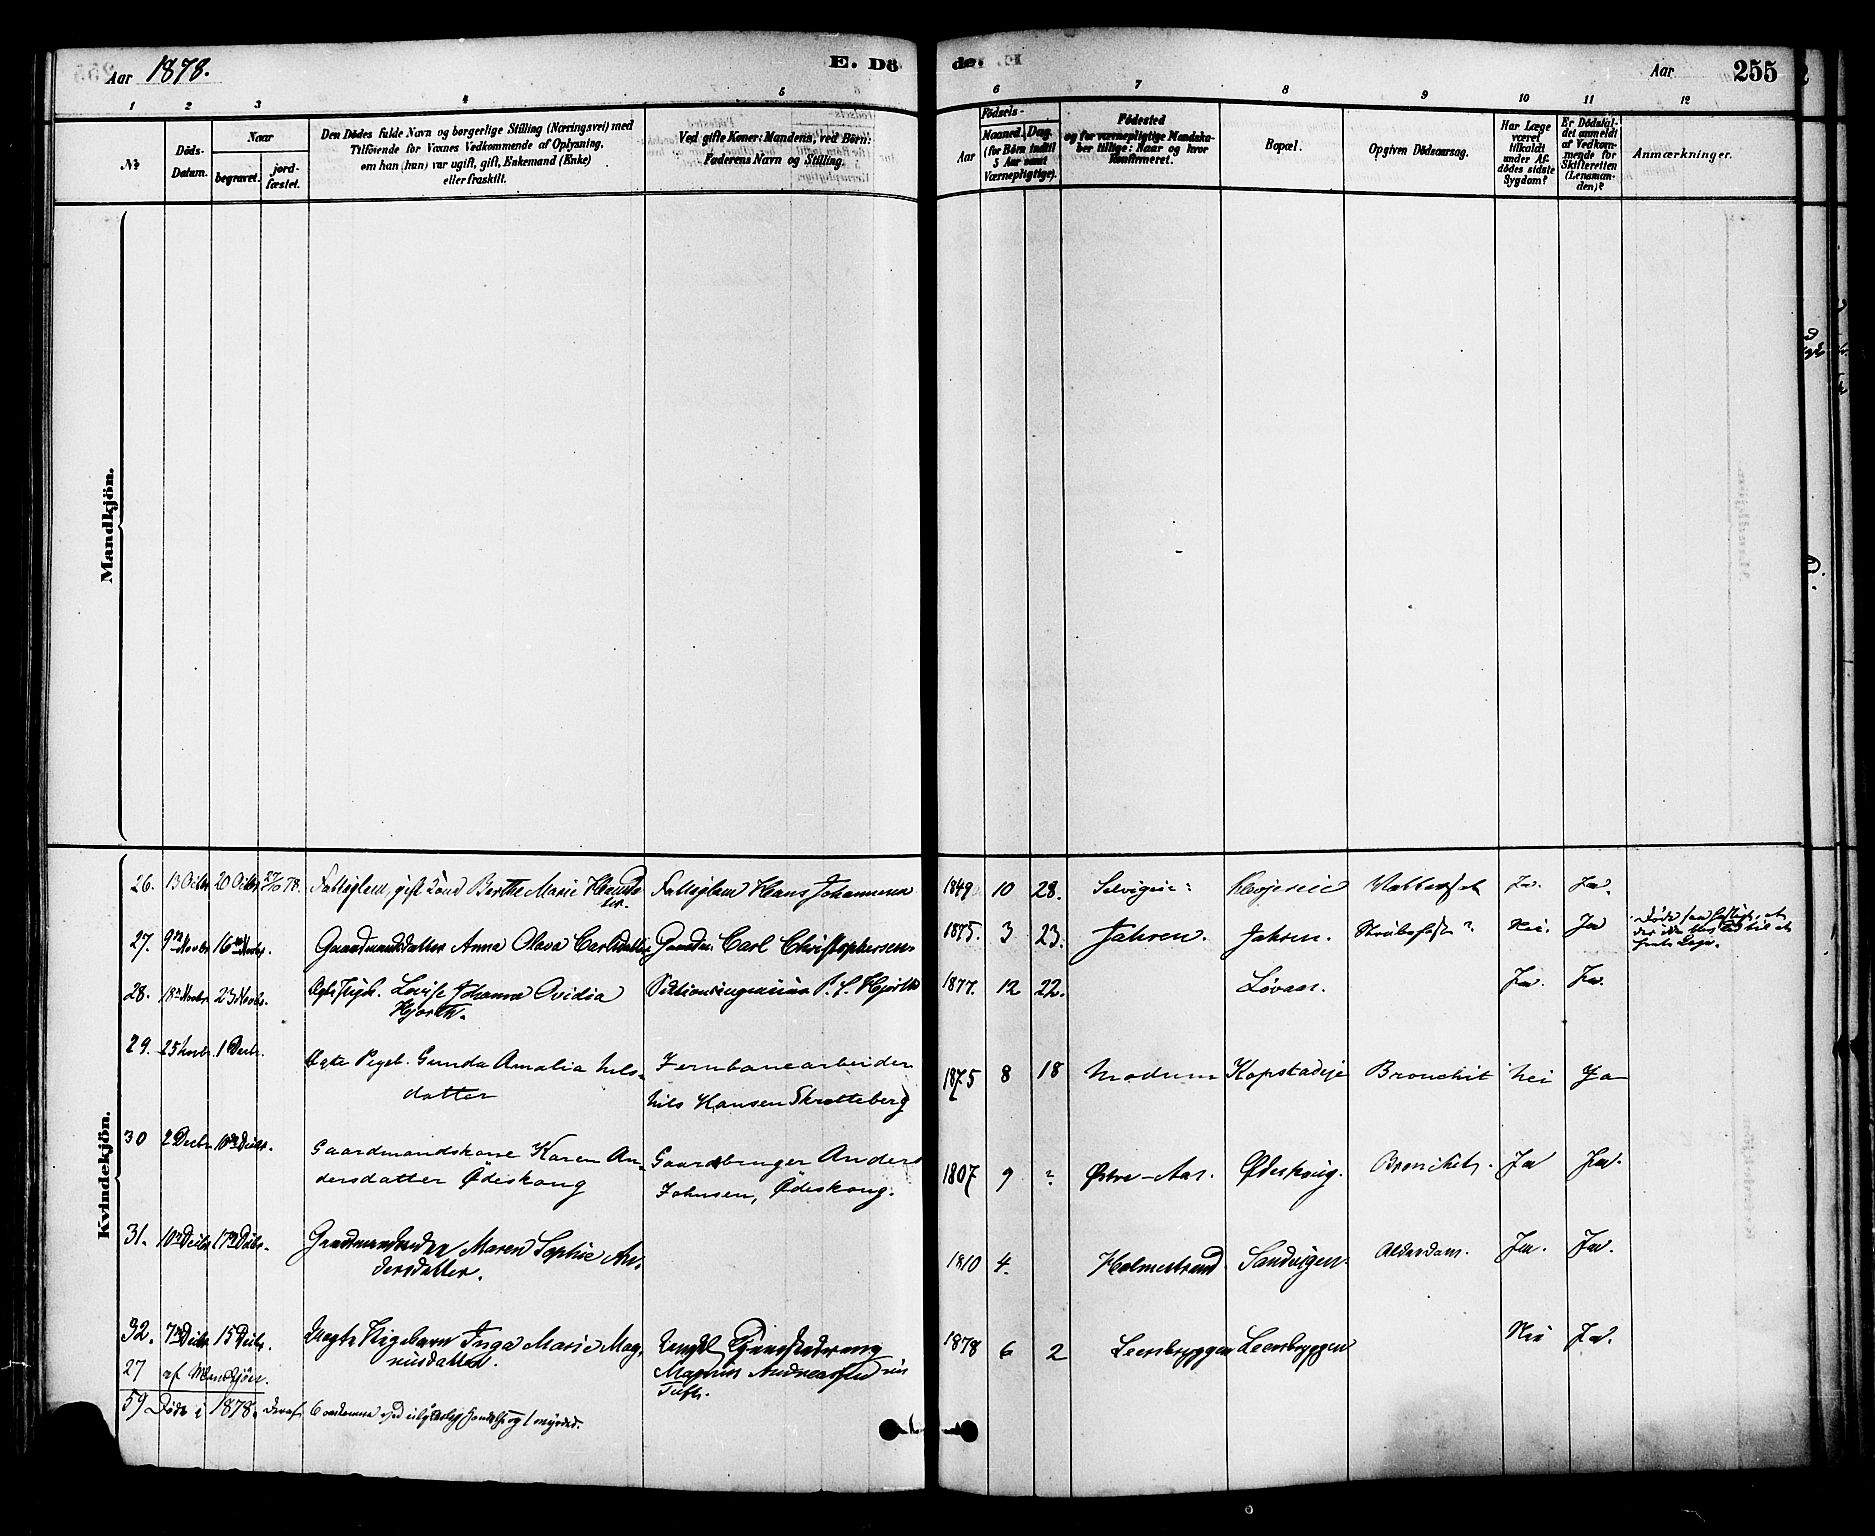 Aar 1878.
E. Dö de.
Aar 255
1 2 3 4 5 6 7 8 9 10 11 12
No
Döds-Datum.
Naar
begravet.
jord-fæstet.
Den Dødes fulde Navn og borgerlige Stilling (Næringsvei) med
Tilføiende for Voxnes Vedkommende af Oplysning,
om han (hun) var ugift, gift, Enkemand (Enke)
eller fraskilt.
Ved gifte Koner: Mandens, ved Børn:
Faderens Navn og Stilling.
Födsels-
Aar
Maaned. Dag.
(for Börn indtil
5 Aar samt
Værnepligtige).
Fødested
og for værnepligtige Mandska-
ber tillige: Naar og hvor
Konfirmeret.
Bopæl.
Opgiven Dödsaarsag.
Har Læge
været
tilkaldt
under Af-
dødes sidste
Sygdom?
Er Dödsfal-
det anmeldt
af Vedkom-
mende for
Skifteretten
(Lensman-
den)?
Anmærkninger.
Mandkjön.
Kvindekjön.
26. 13 Octbr 20 Octbr 27/10 78. gift Berthe Marie Hans Johannesen 1849 10 28. Ja. Ja.
27. 9de Novbr 16de Novbr. Gaardmandsdatter Anna Olava Carlsdatter Gaardm. Carl Christophersen 1875. 3 23. Jahren. Jahren. Nei. Ja
28. 18de Novbr 23 Novbr. Lovise Johanna Ovidia
Hjorth.
P. S. Hjorth 1877. 12 22. Løvaas. Ja. Ja.
29. 25 Novbr. 1 Decbr. Ægte Pigeb. Gunda Amalia Nils-
datter
Jernbanearbeider
Nils Hansen Skretteberg
1875 8 18 Modum Kopstadeje Bronchit Nei Ja
30 2 Decbr 10de Decbr. Gaardmandskone Karen An-
dersdatter Ødeskoug
Gaardbruger Anders
Johnsen, Ødeskoug.
1807 9 ? Østre-Aas. Ødeskoug. Bronchit. Ja Ja.
31. 10de Decbr 17de Decbr. Maren Sophie An-
dersdatter.
1810 4. Holmestrand. Sandvigen. Alderdom. Ja. Ja.
32. 7de Decbr 15 Decbr. Uægte Pigebarn Inga Marie Mag-
nusdatter.
Ungkarl
Magnus Andreassen
1878 6 2 Leersbryggen Leersbryggen Nei Ja.
27 af Mandkjön.
59 Døde i 1878. deraf 6 omkomne ved og 1 myrdet.